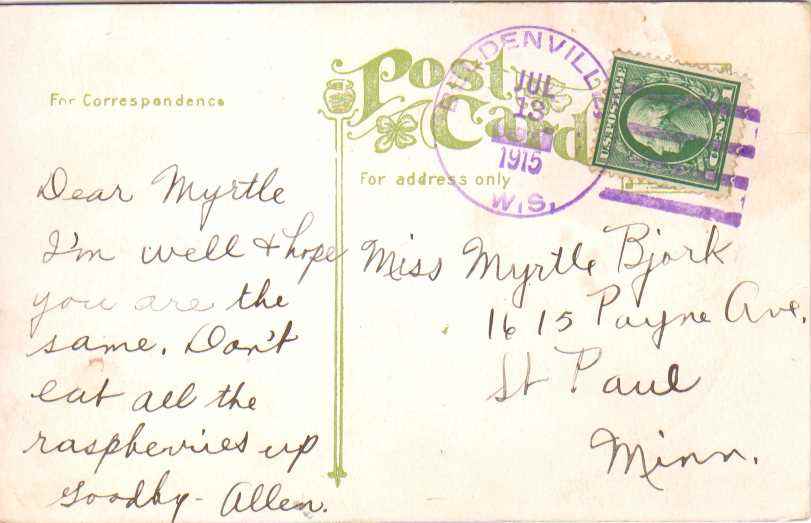 Post Card
For Correspondence
For address only
BELDENVILLE
JUL
13
1915
WIS.
U.S. POSTAGE
1 CENT 1
Dear Myrtle
I'm well & hope
you are the
same. Don't
eat all the
raspberries up
Goodby - Allen.
Miss Myrtle Bjork
1615 Payne Ave.
St Paul
Minn.